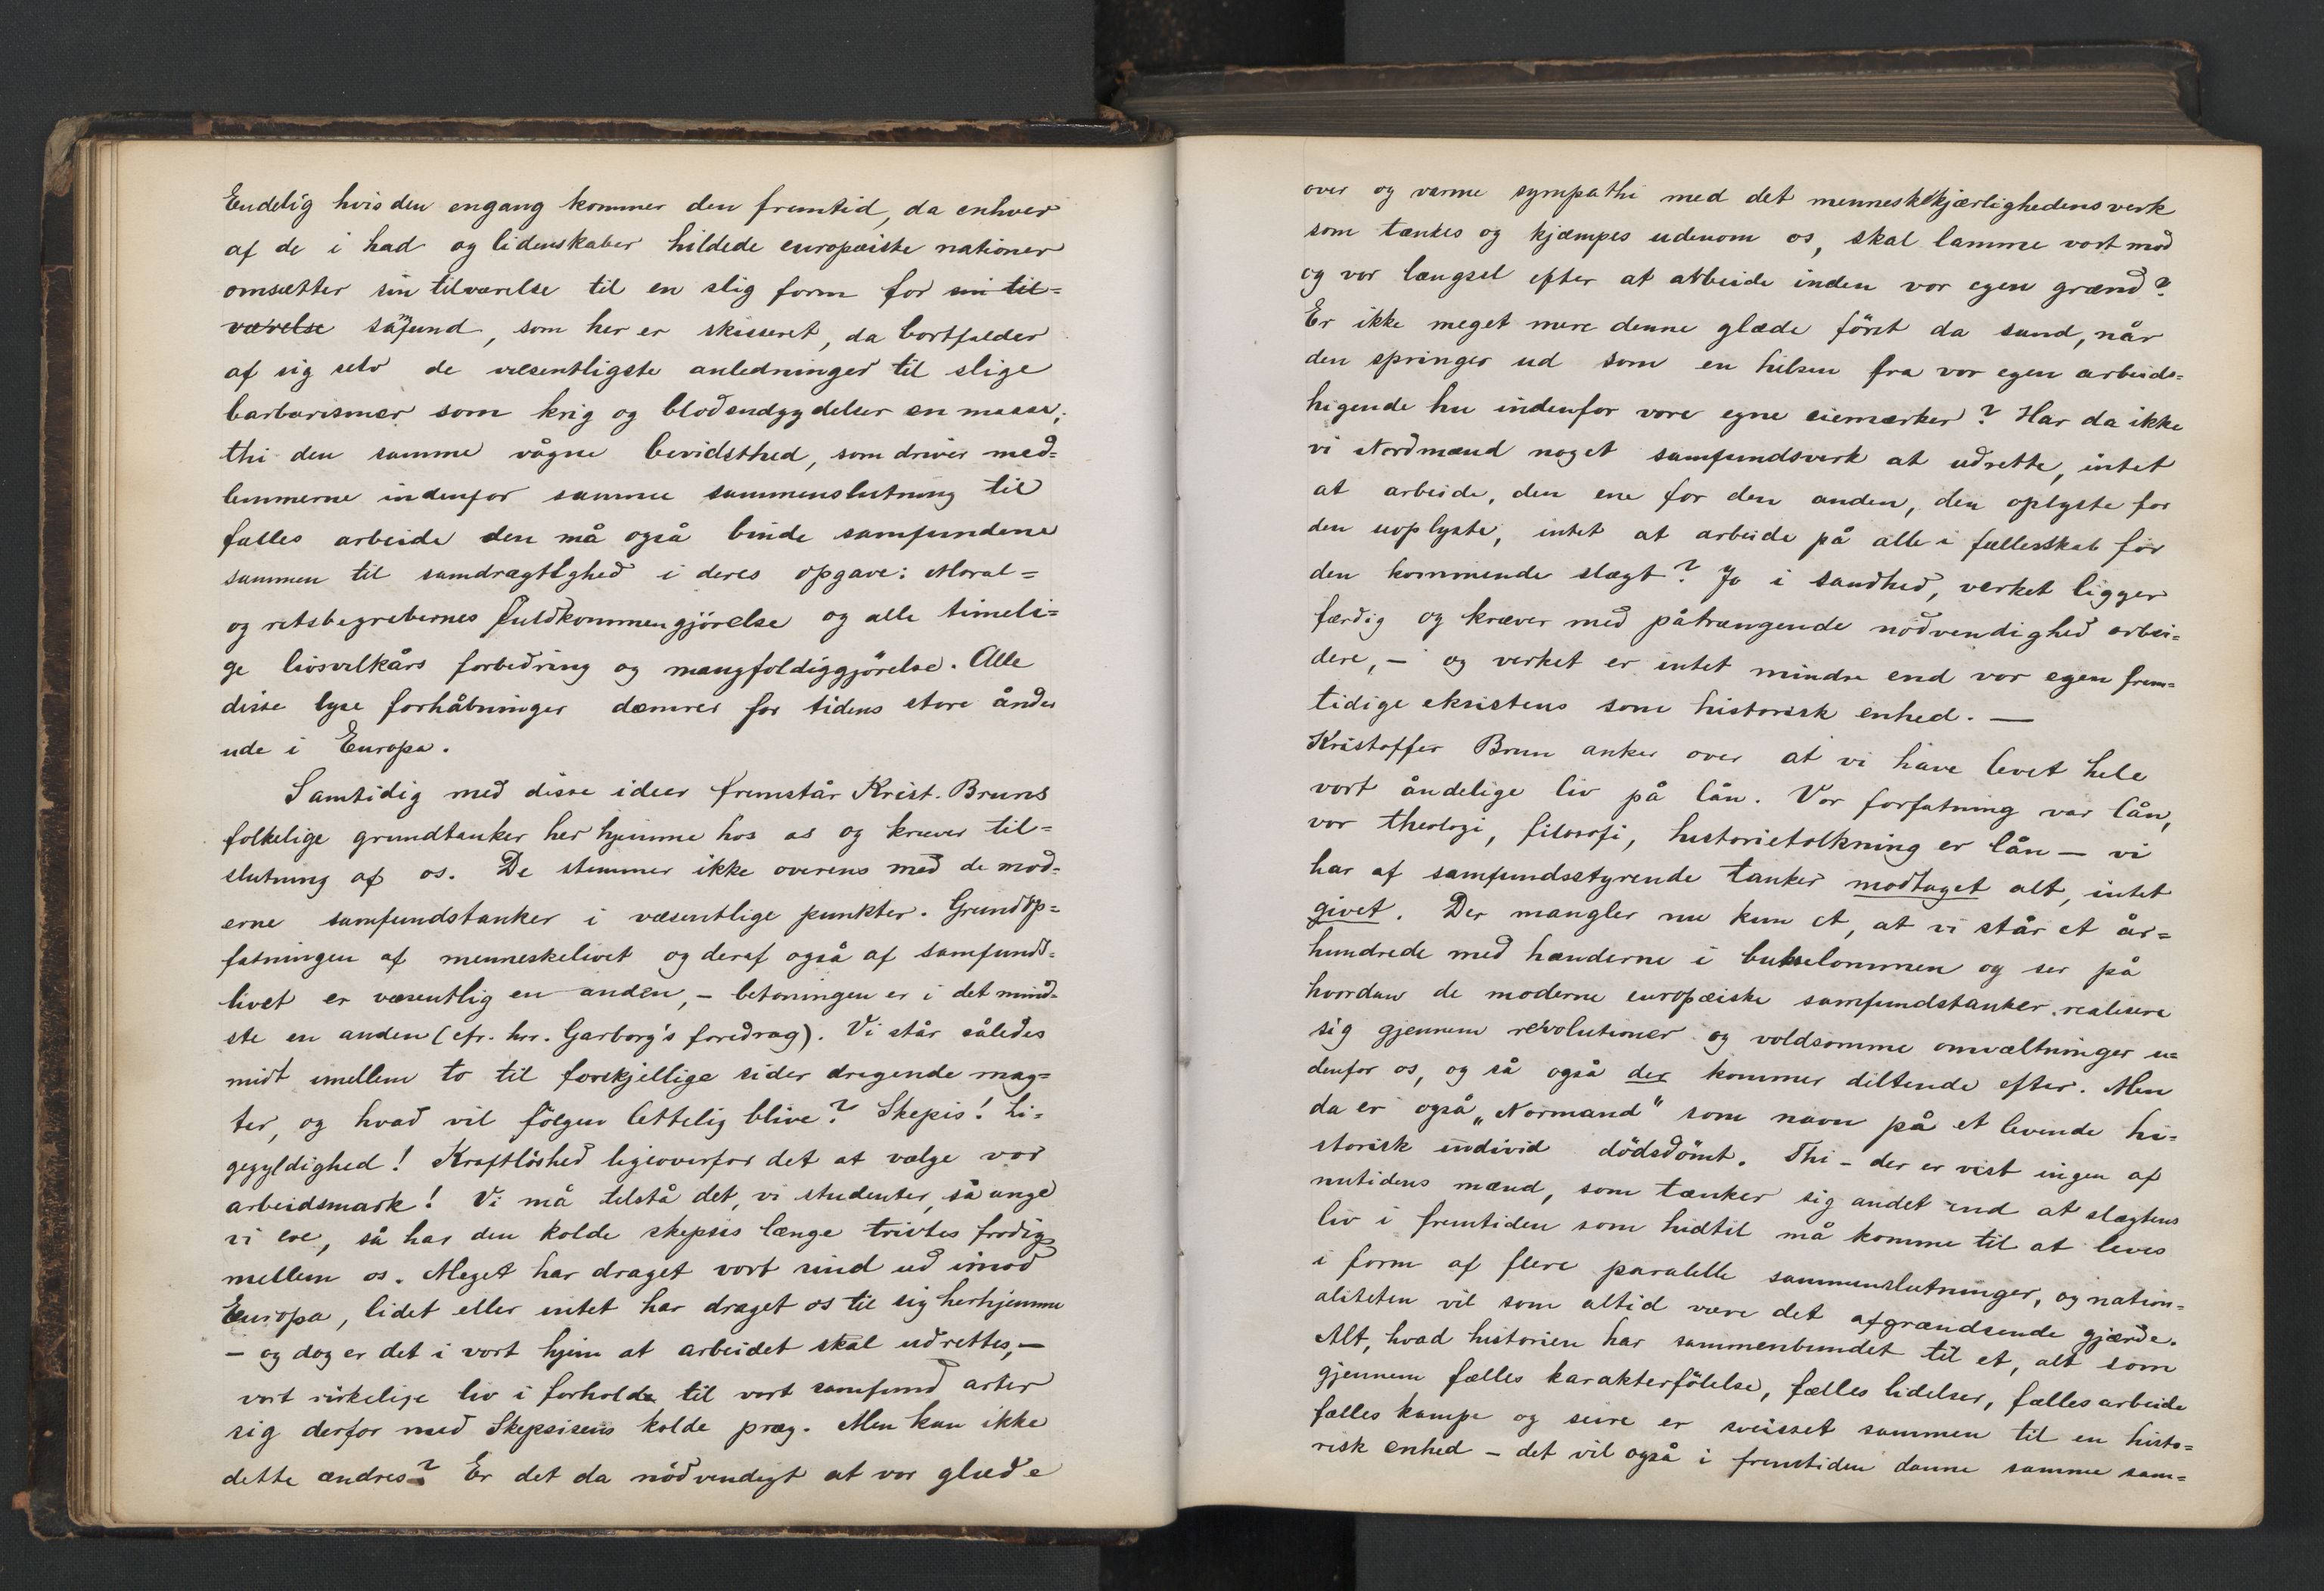 Endelig hvis den engang kommer den fremtid, da enhver
af de i had og lidenskaber hildede europæiske nationer
omsætter sin tilværelse til en slig form for sin til=
værelse samfund, som her er skisseret, da bortfalder
af sig selv de væsentligste anledninger til slige
barbarismer som krig og blodsudgydelser en masse;
thi den samme vågne bevidsthed, som driver med=
lemmerne indenfor samme sammenslutning til
fælles arbeide den må også binde samfundene
sammen til samdrægtighed i deres opgave: Moral=
og retsbegrebernes fuldkommengjörelse og alle timeli=
ge livsvilkårs forbedring og mangfoldiggjörelse. Alle
disse lyse forhåbninger dæmrer for tidens store ånder
ude i Europa.
Samtidig med disse ideer fremstår Krist. Bruns
folkelige grundtanker her hjemme hos os og kræver til=
slutning af os. De stemmer ikke overens med de mod=
erne samfundstanker i væsentlige punkter. Grundop=
fatningen af menneskelivet og deraf også af samfunds=
livet er væsentlig en anden, – betoningen er i det mind=
ste en anden (cfr. hrr. Garborg's foredrag). Vi står således
midt imellem to til forskjellige sider dragende mag=
ter, og hvad vil fölgen lettelig blive? Skepis! Li=
gegyldighed! Kraftlöshed ligeoverfor det at vælge vor
arbeidsmark! Vi må tilstå det, vi studenter, så unge
vi ere, så har den kolde skepsis længe trivtes frodig
mellem os. Meget har draget vort sind ud imod
Europa, lidet eller intet har draget os til sig herhjemme
– og dog er det i vort hjem at arbeidet skal udrettes, –
vort virkelige liv i forhold til vort samfund arter
sig derfor med Skepsisens kolde præg. Men kan ikke
dette ændres? Er det da nödvendigt at vor glæde
over og varme sympathi med det menneskekjærlighedens verk
som tænkes og kjæmpes udenom os, skal lamme vort mod
og vor længsel efter at arbeide inden vor egen grænd?
Er ikke meget mere denne glæde föret da sund, når
den springer ud som en hilsen fra vor egen arbeids=
higende hu indenfor vore egne eiemærker? Har da ikke
vi Nordmænd noget samfundsverk at udrette, intet
at arbeide, den ene for den anden, den oplyste for
den uoplyste, intet at arbeide på alle i fællesskab for
den kommende slægt? Jo i sandhed, verket ligger
færdig og kræver med påtrængende nödvendighed arbei=
dere, – og verket er intet mindre end vor egen frem=
tidige eksistens som historisk enhed. —
Kristoffer Brun anker over at vi have levet hele
vort åndelige liv på lån. Vor forfatning var lån,
vor theologi, filosofi, historietolkning er lån – vi
har af samfundsstyrende tanker modtaget alt, intet
givet. Der mangler nu kun et, at vi står et år=
hundrede med hænderne i bukselommen og ser på
hvordan de moderne europæiske samfundstanker realisere
sig gjennem revolutioner og voldsomme omvæltninger u=
denfor os, og så også der kommer diltende efter. Men
da er også „Normand" som navn på et levende hi=
storisk individ dödsdömt. Thi – der er vist ingen af
nutidens mænd, som tænker sig andet end at slægtens
liv i fremtiden som hidtil må komme til at leves
i form af flere paralelle sammenslutninger, og nation=
aliteten vil som altid være det afgrændsende gjærde.
Alt, hvad historien har sammenbundet til et, alt som
gjennem fælles karakterfölelse, fælles lidelser, fælles arbeide
fælles kampe og seire er sveisset sammen til en histo=
risk enhed – det vil også i fremtiden danne samme sam=